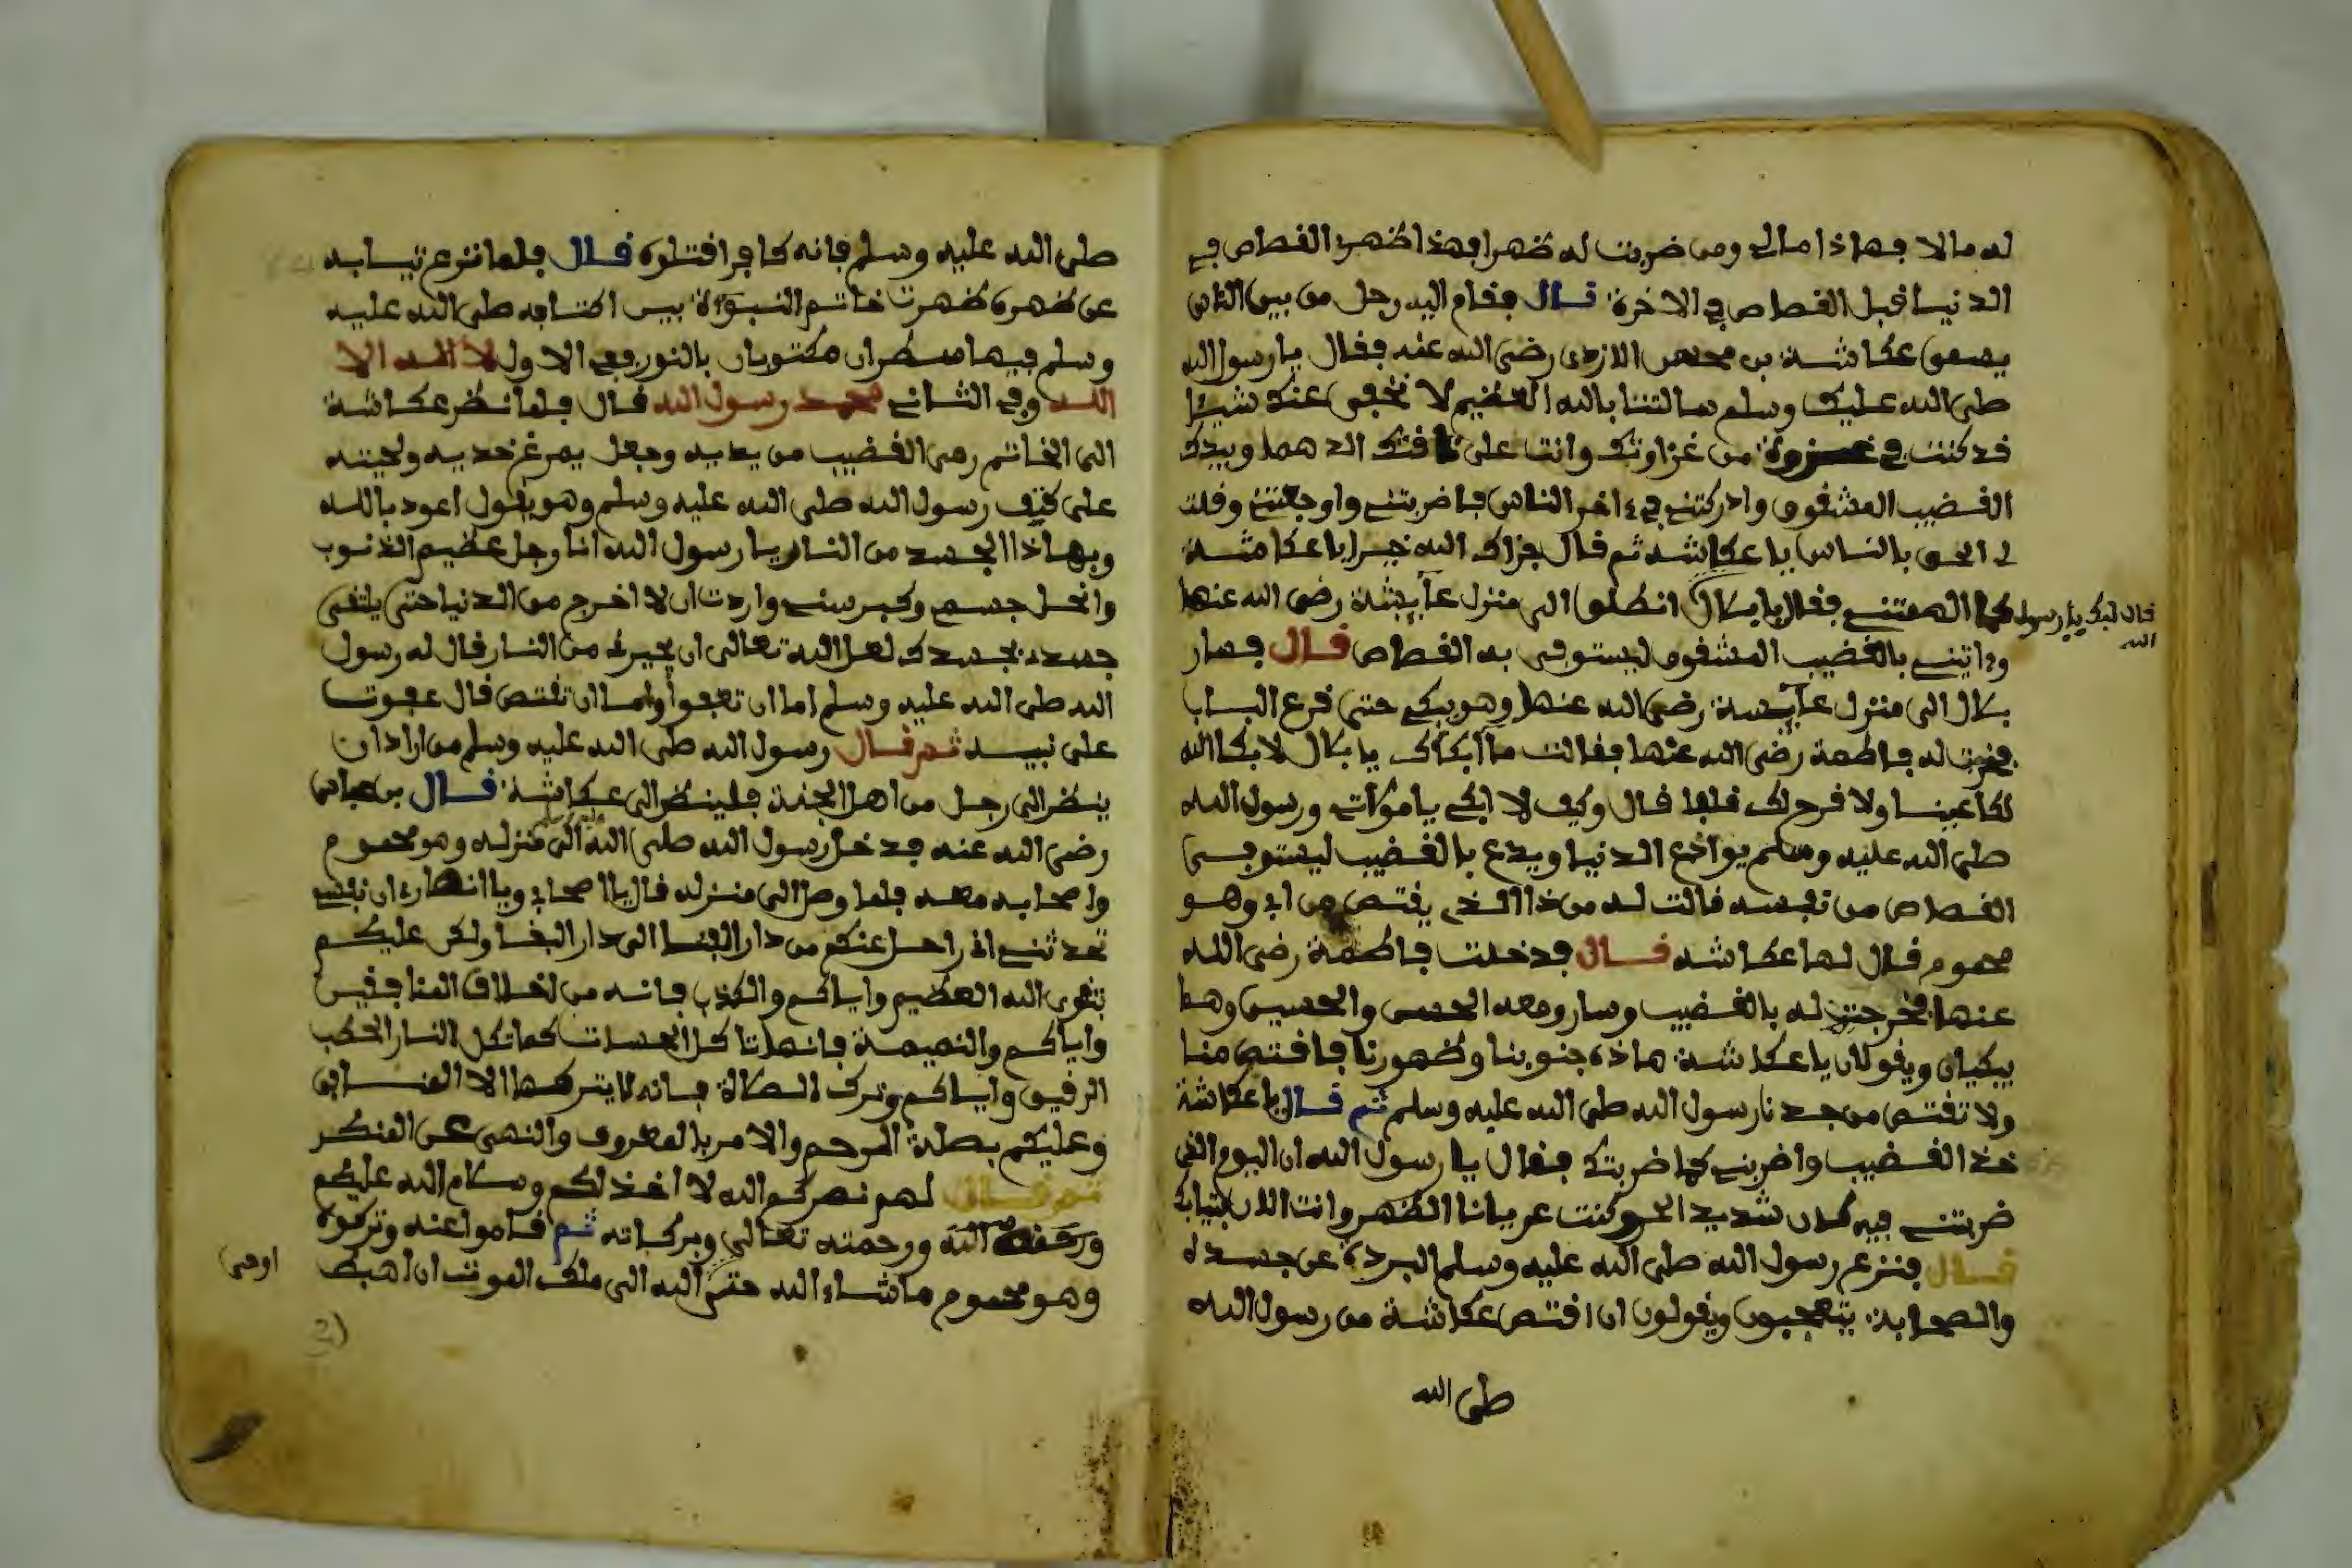 له مالا فهاذا مالي ومن ضربت له ظهرا فهذا ظهري القصاص في
الدنيا قبل القصاص في الاخرة قال فقام اليه رجل من بين الناس
يسمى عكاشة بن محصن الازدي رضي الله عنه فقال يا رسول الله
صلى الله عليك وسلم سالتنا بالله العظيم لا نخفي عنك شيئا
قد كنت في غزوة من غزاوتك وانت على ناقتك الدهما وبيدك
القضيب المشقوق وادركتني في ءاخر الناس فاضربتني واوجعتني وقلت
لي الحق بالناس يا عكاشه ثم قال جزاك الله خيرا يا عكاشة
كما الهمتني فقال يا بلال انطلق الى منزل عآيشة رضي الله عنها
قال لبيك يا رسول الله
وءاتيني بالقضيب المشقوق ليستوفى به القصاص قال فسار
بلال الى منزل عآيسة رضي الله عنها وهو يبكي حتى قرع الباب
فخرجت له فاطمة رضي الله عنها فقالت ما ابكاك يا بلال لا بكا الله
لك عينا ولا فرح لك قلبا قال وكيف لا ابكي يا مولاتي ورسول الله
صلى الله عليه وسلم يوادع الدنيا ويدع بالقضيب ليستوفى
القصاص من نفسه قالت له من ذا الذي يقتص من ابي وهو
محموم قال لها عكاشه قال فدخلت فاطمة رضي الله
عنها فخرجت له بالقضيب وسار ومعه الحسن والحسين وهما
يبكيان ويقولان يا عكاشة هاذه جنوبنا وظهورنا فاقتص منا
ولا تقتص من جدنا رسول الله صلى الله عليه وسلم ثم قال يا عكاشة
خذ القضيب واضربني كما ضربتك فقال يا رسول الله ان اليوم الذي
ضربتني فيه كان شديد الحر وكنت عريانا الظهر وانت الان بثيابك
قال فنزع رسول الله صلى الله عليه وسلم البردة عن جسده
والصحابة يتعجبون ويقولون ان اقتص عكاشة من رسول الله
صلى الله
صلى الله عليه وسلم فانه كافر اقتلوه قال فلما نزع تيابه
عن ظهره ظهرت خاتم النبوة بين اكتافه صلى الله عليه
وسلم فيها سطران مكتوبان بالنور ففي الاول لا اله الا
الله وفي الثاني محمد رسول الله قال فلما نظر عكاشة
الى الخاتم رمى القضيب من يديه وجعل يمرغ خديه ولحيته
على كتف رسول الله صلى الله عليه وسلم وهو يقول اعود بالله
وبهاذا الجسد من النار يا رسول الله انا رجل عظيم الذنوب
وانحل جسمي وكبر سني واردت ان لا اخرج من الدنيا حتى يلتقى
جسدي بجسدك لعل الله تعالى ان يجيرني من النار قال له رسول
الله صلى الله عليه وسلم اما ان تعفوا واما ان تقتص قال عفوت
على نبيه ثم قال رسول الله صلى الله عليه وسلم من اراد ان
ينظر الى رجل من اهل الجنة فلينظر الى عكاشة قال بن عباس
رضي الله عنه فدخل رسول الله صلى الله عليه وسلم الى منزله وهو محموم
واصحابه معه فلما وصل الى منزله قال يا اصحابي ويا انصاري ان نفسي
تحدثني اني راحل عنكم من دار الفنا الى دار البقا ولكن عليكم
بتقوى الله العظيم واياكم والكذب فانه من اخلاق المنافقين
واياكم والنميمة فانها تاكل الحسنات كما تكل النار الحطب
الرقيق واياكم وترك الصلاة فانه لا يتركها الا
وعليكم بصلة الرحم والامر بالمعروف والنهي عن المنكر
ثم قال لهم نصركم الله لا اخذلكم وسلام الله عليكم
ورحمة الله ورحمته تعالى وبركاته ثم قاموا عنه وتركوه
وهو محموم ما شاء الله حتى الله الى ملك الموت ان اهبط
اوحى